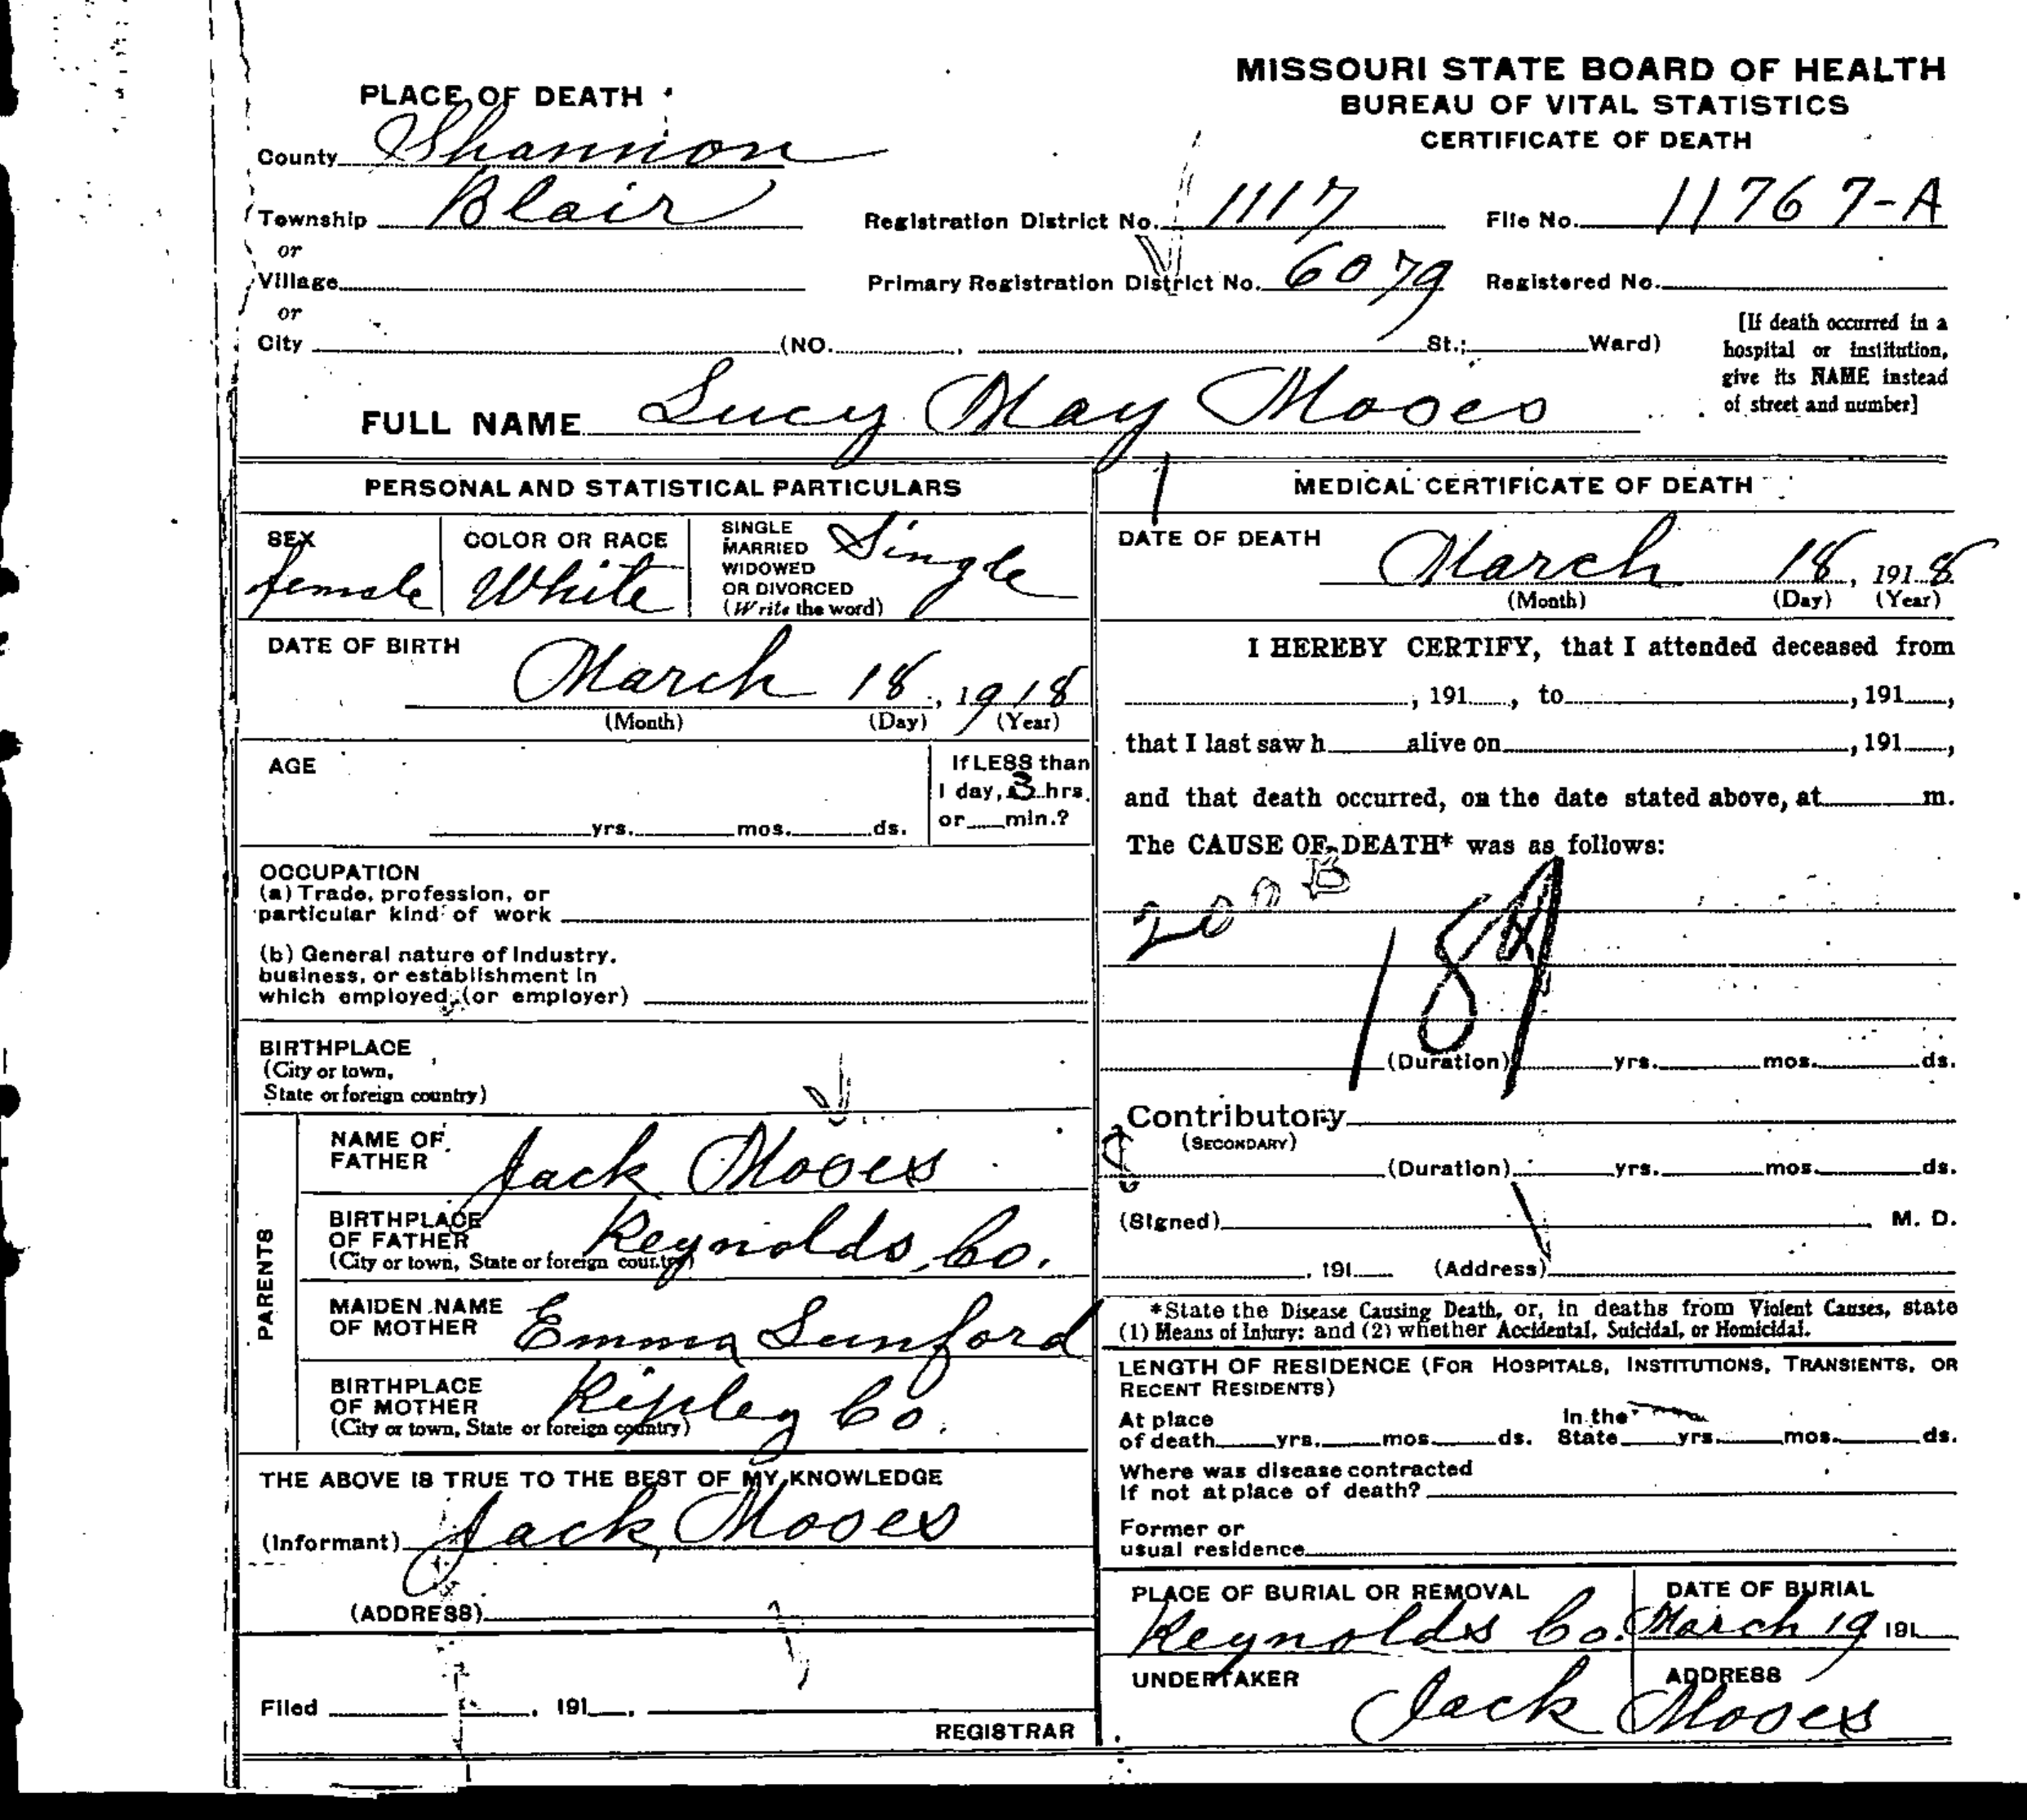 MISSOURI STATE BOARD OF HEALTH
BUREAU OF VITAL STATISTICS
CERTIFICATE OF DEATH
PLACE OF DEATH
County Shannon
Township Blair
or
Village
or
City (NO. , St.; Ward)
Registration District No. 1117
File No. 11767-A
Primary Registration District No. 6079
Registered No.
[If death occurred in a
hospital or institution,
give its NAME instead
of street and number]
FULL NAME Lucy May Moses
PERSONAL AND STATISTICAL PARTICULARS
SEX
female
COLOR OR RACE
White
SINGLE
MARRIED
WIDOWED
OR DIVORCED
(Write the word)
Single
DATE OF BIRTH
March 18, 1918
(Month) (Day) (Year)
AGE
yrs. mos. ds.
If LESS than
1 day, 3 hrs.
or min.?
OCCUPATION
(a) Trade, profession, or
particular kind of work
(b) General nature of Industry,
business, or establishment in
which employed (or employer)
BIRTHPLACE
(City or town,
State or foreign country)
PARENTS
NAME OF
FATHER
Jack Moses
BIRTHPLACE
OF FATHER
(City or town, State or foreign country)
Reynolds Co.
MAIDEN NAME
OF MOTHER
Emma Sunford
BIRTHPLACE
OF MOTHER
(City or town, State or foreign country)
Ripley Co.
THE ABOVE IS TRUE TO THE BEST OF MY KNOWLEDGE
(Informant) Jack Moses
(ADDRESS)
Filed , 191 ,
REGISTRAR
MEDICAL CERTIFICATE OF DEATH
DATE OF DEATH
March 18, 1918
(Month) (Day) (Year)
I HEREBY CERTIFY, that I attended deceased from
, 191 , to , 191 ,
that I last saw h alive on , 191 ,
and that death occurred, on the date stated above, at m.
The CAUSE OF DEATH* was as follows:
200 B
189
(Duration) yrs. mos. ds.
Contributory
(SECONDARY)
(Duration) yrs. mos. ds.
(Signed) M. D.
, 191 (Address)
*State the Disease Causing Death, or, in deaths from Violent Causes, state
(1) Means of Injury; and (2) whether Accidental, Suicidal, or Homicidal.
LENGTH OF RESIDENCE (FOR HOSPITALS, INSTITUTIONS, TRANSIENTS, OR
RECENT RESIDENTS)
At place
of death yrs. mos. ds.
In the
State yrs. mos. ds.
Where was disease contracted
if not at place of death?
Former or
usual residence
PLACE OF BURIAL OR REMOVAL
Reynolds Co.
DATE OF BURIAL
March 19 191
UNDERTAKER
ADDRESS
Jack Moses